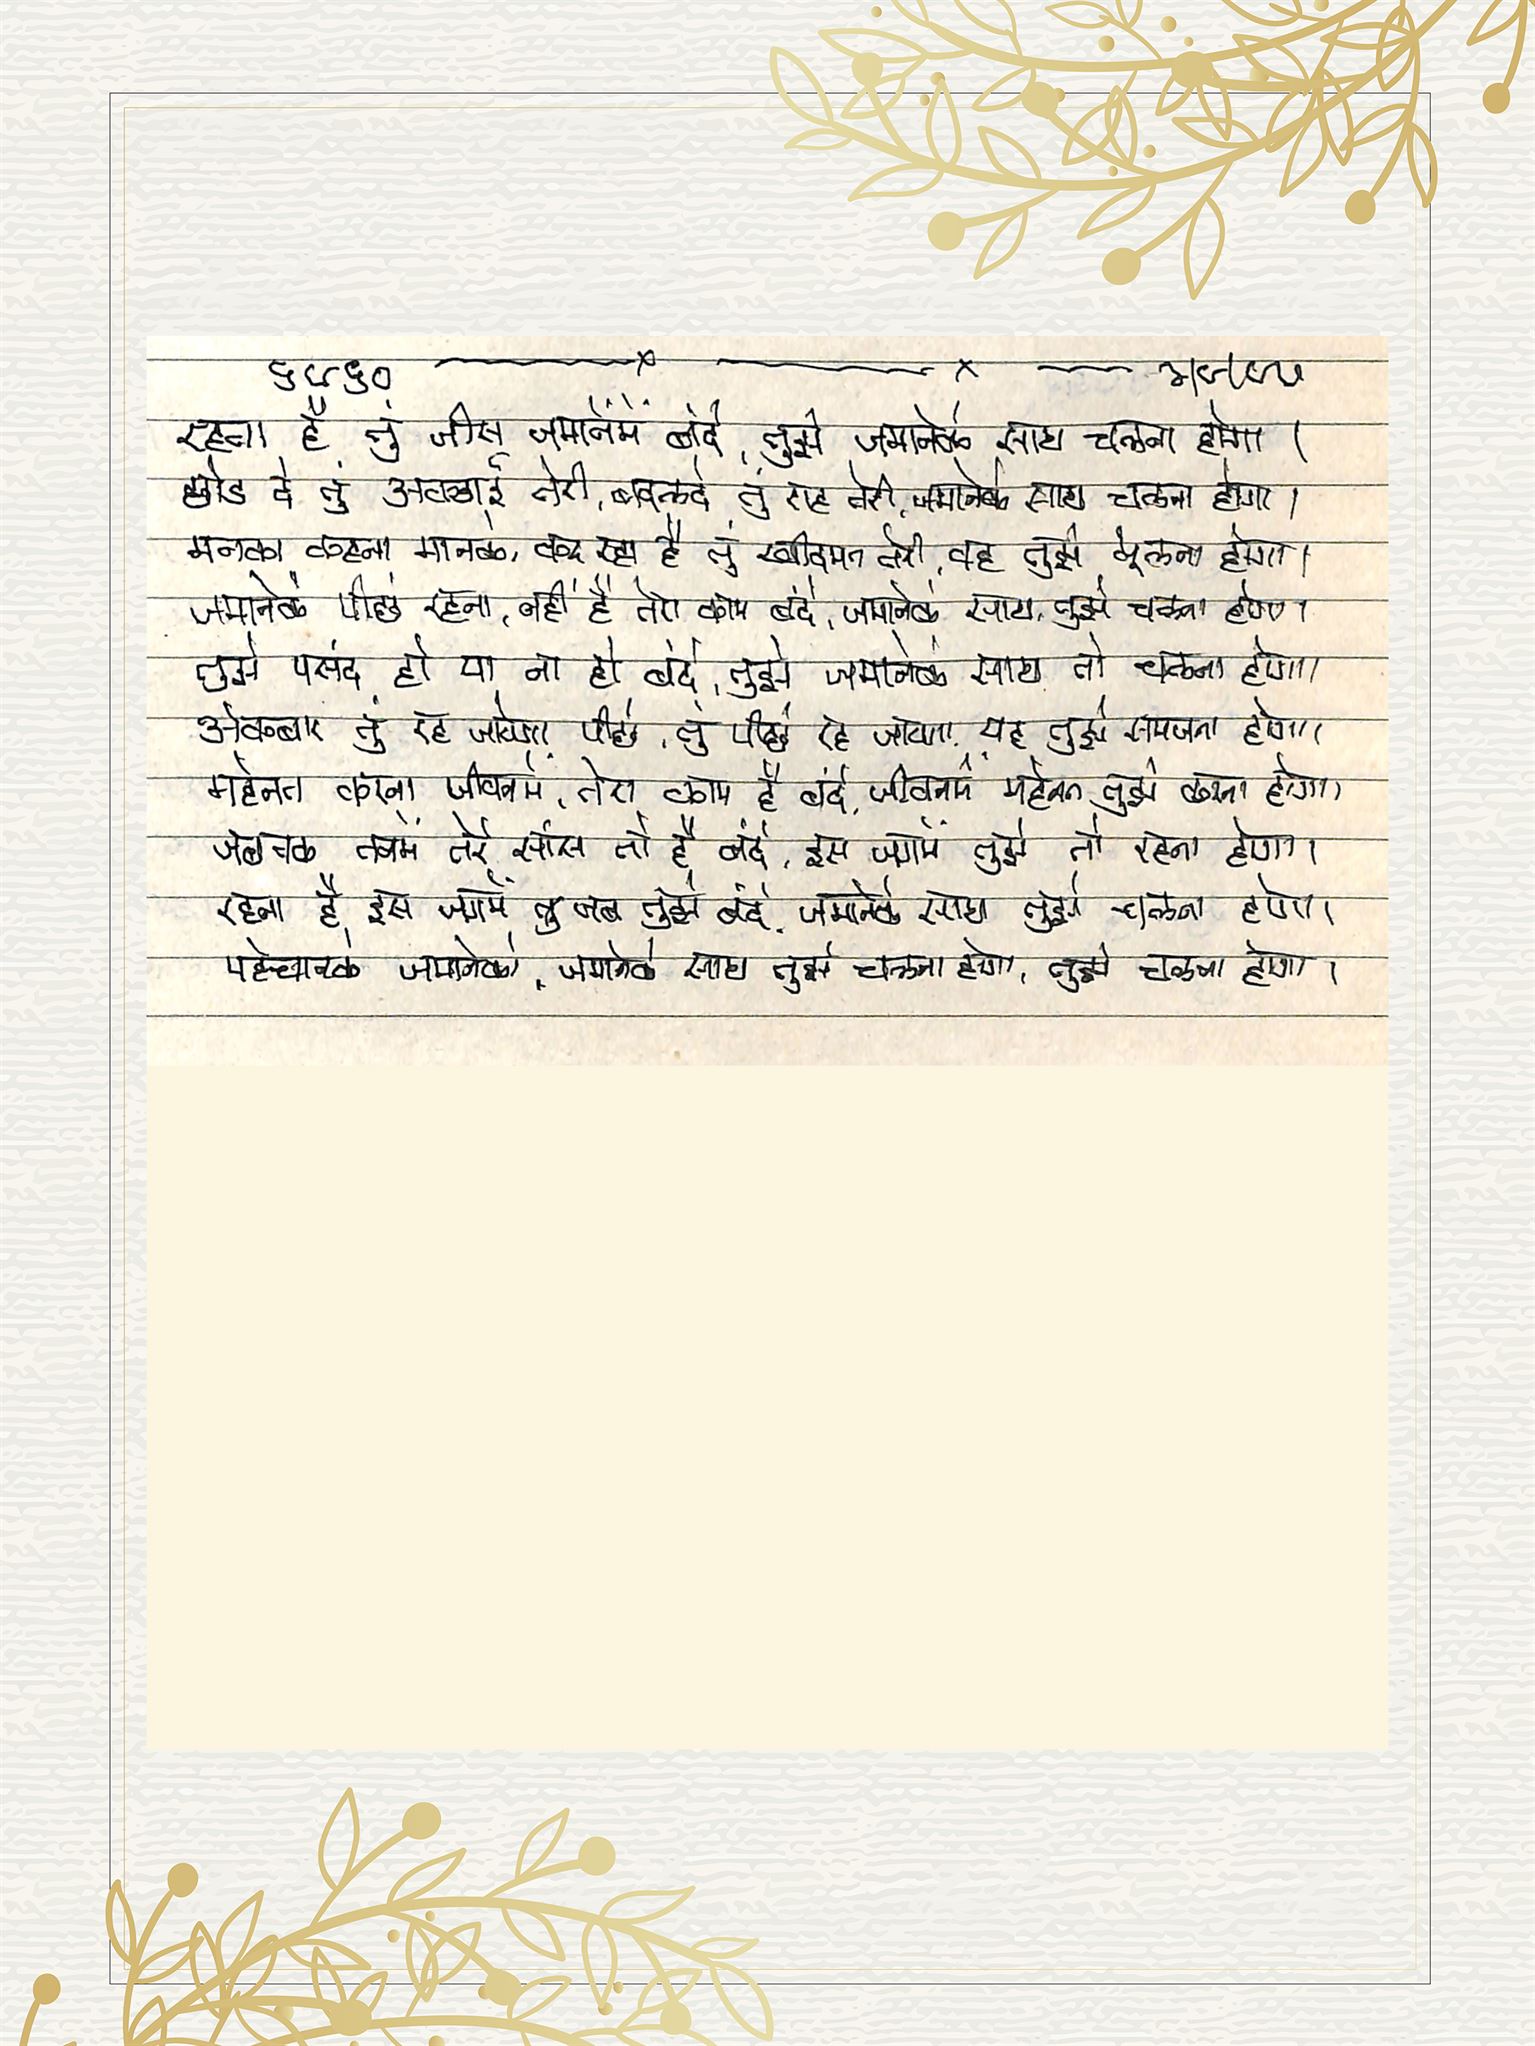 रहना है तुं जीस जमानेमें बंदे, तुझे जमानेके साथ चलना होगा ।
छोड दे तुं अकडाई तेरी, बदलदे तुं राह तेरी, जमानेके साथ चलना होगा ।
मनका कहना मानके, कर रहा है तुं खीदमत तेरी, वह तुझे भूलना होगा ।
जमानेके पीछे रहना, नहीं है तेरा काम बंदे, जमानेके साथ, तुझे चलना होगा ।
तुझे पसंद हो या ना हो बंदे, तुझे जमानेके साथ तो चलना होगा ।
अेकबार तुं रह जायेगा पीछे, तुं पीछे रह जायेगा, यह तुझे समजना होगा ।
महेनत करना जीवनमें, तेरा काम है बंदे, जीवनमें महेनत तुझे करना होगा ।
जब तक तनमें तेरे साँस तो है बंदे, इस जगमें तुझे तो रहना होगा ।
रहना है इस जगमें जब तुझे बंदे, जमानेके साथ तुझे चलना होगा ।
पहेचानके जमानेको, जमानेके साथ तुझे चलना होगा, तुझे चलना होगा ।